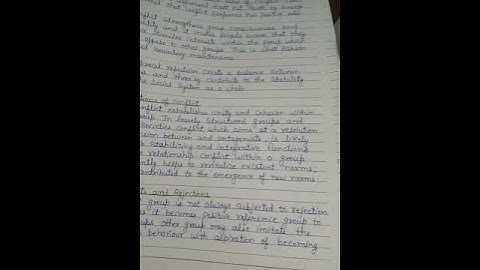 argument
that conflict performs two positive
conflict strengthens group consciousness and
identity and it makes people aware that they
interests within the group which
oppose to other groups. This is what Parson
boundary maintenance.
repulsion creates a balance between
and thereby contribute to the stability
the social system as a whole
of Conflict
Conflict establishes unity and cohesion within
group. In loosely structured groups and
societies conflict which aims at a resolution
between and antagonists, is likely
stabilizing and integrative functions
relationship. Conflict within a group
helps to revitalise existent norms;
contributed to the emergence of new norms.
and Rejections
group is not always subjected to rejection
it becomes positive reference group to
other group may also imitate the
behaviour with aspiration of becoming